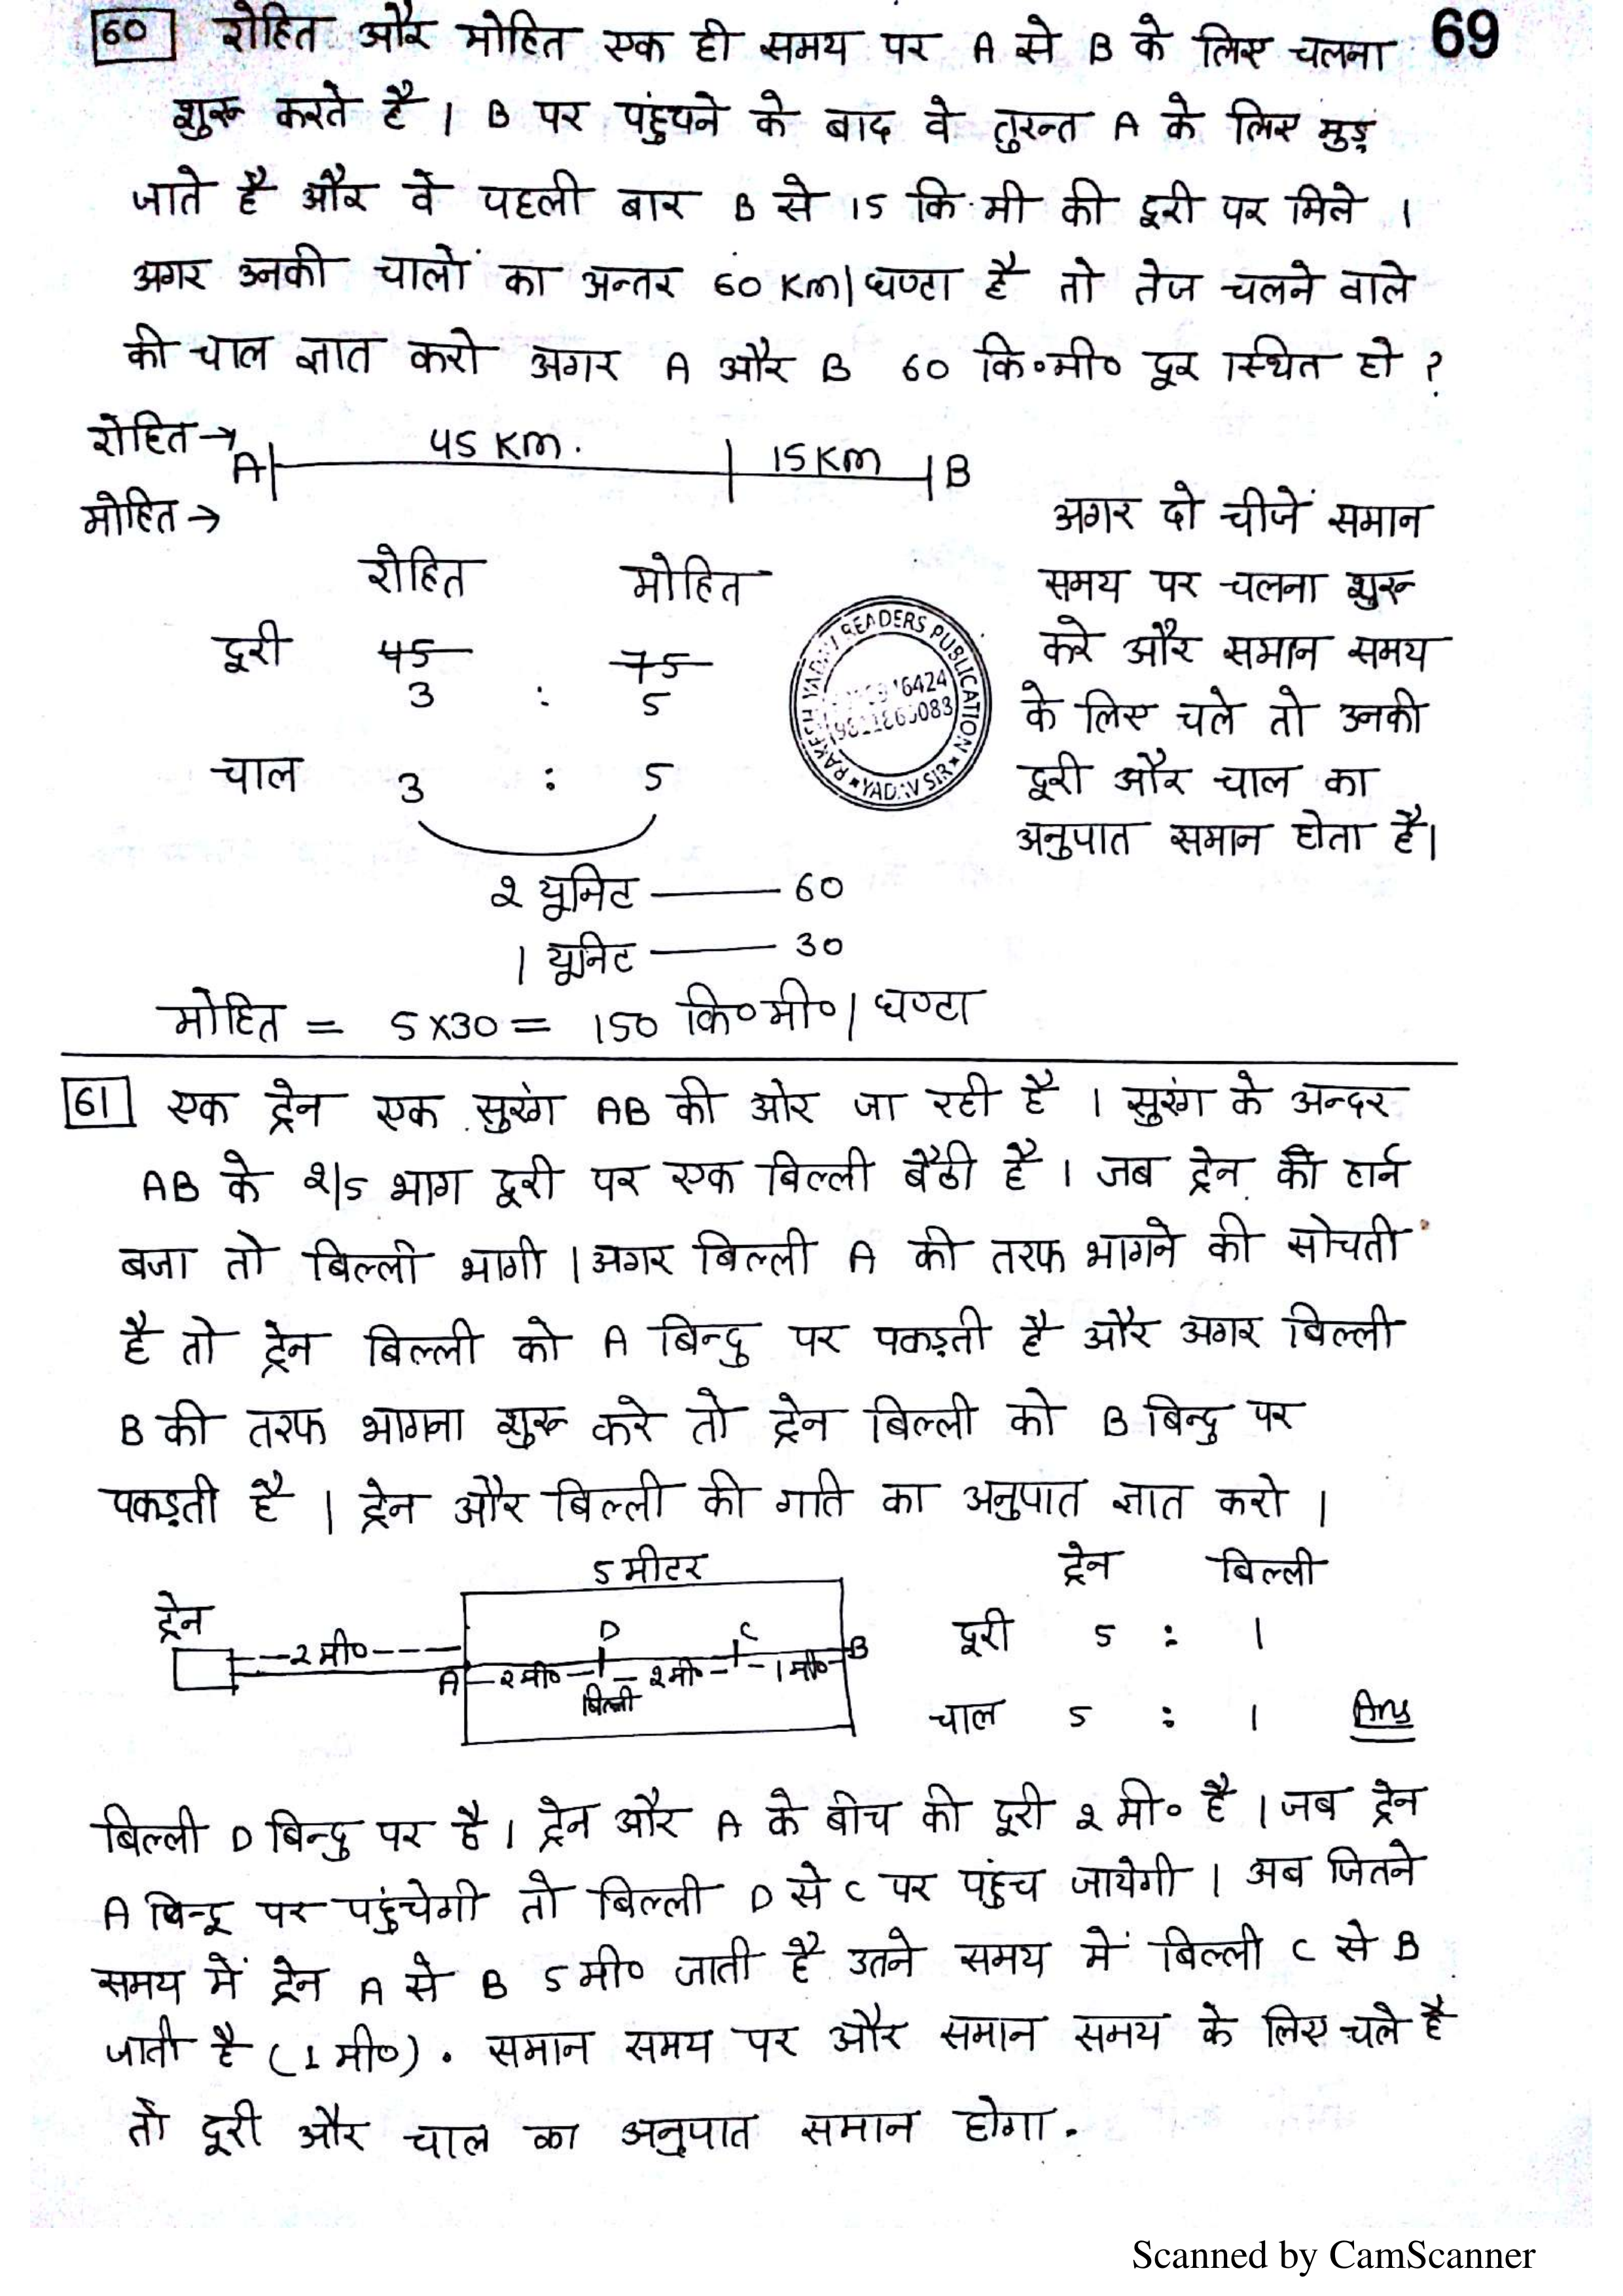 60 रोहित और मोहित एक ही समय पर A से B के लिए चलना 69
शुरू करते है । B पर पंहुचने के बाद वे तुरन्त A के लिए मुड़
जाते है और वे पहली बार B से 15 कि.मी की दूरी पर मिले ।
अगर उनकी चालों का अन्तर 60 Km/घण्टा है तो तेज चलने वाले
की चाल ज्ञात करो अगर A और B 60 कि०मी० दूर स्थित हो ?
रोहित → A 45 Km. 15 Km B
मोहित →
अगर दो चीजें समान
समय पर चलना शुरू
करे और समान समय
के लिए चले तो उनकी
दूरी और चाल का
अनुपात समान होता है।
रोहित मोहित
दूरी 45 75
3 : 5
चाल 3 : 5
READERS PUBLICATION
YADAV SIR
2 यूनिट —— 60
1 यूनिट —— 30
मोहित = 5x30 = 150 कि०मी०/घण्टा
61 एक ट्रेन एक सुरंग AB की ओर जा रही है । सुरंग के अन्दर
AB के 2/5 भाग दूरी पर एक बिल्ली बैठी है । जब ट्रेन की हार्न
बजा तो बिल्ली भागी । अगर बिल्ली A की तरफ भागने की सोचती
है तो ट्रेन बिल्ली को A बिन्दु पर पकड़ती है और अगर बिल्ली
B की तरफ भागना शुरू करे तो ट्रेन बिल्ली को B बिन्दु पर
पकड़ती है । ट्रेन और बिल्ली की गति का अनुपात ज्ञात करो ।
5 मीटर
ट्रेन बिल्ली
ट्रेन D C
2 मी० A 2 मी० 2 मी० 1 मी० B
बिल्ली
दूरी 5 : 1
चाल 5 : 1 Ans
बिल्ली D बिन्दु पर है । ट्रेन और A के बीच की दूरी 2 मी० है । जब ट्रेन
A बिन्दू पर पहुंचेगी तो बिल्ली D से C पर पहुंच जायेगी । अब जितने
समय में ट्रेन A से B 5 मी० जाती है उतने समय में बिल्ली C से B
जाती है (1 मी०). समान समय पर और समान समय के लिए चले है
तो दूरी और चाल का अनुपात समान होगा.
Scanned by CamScanner